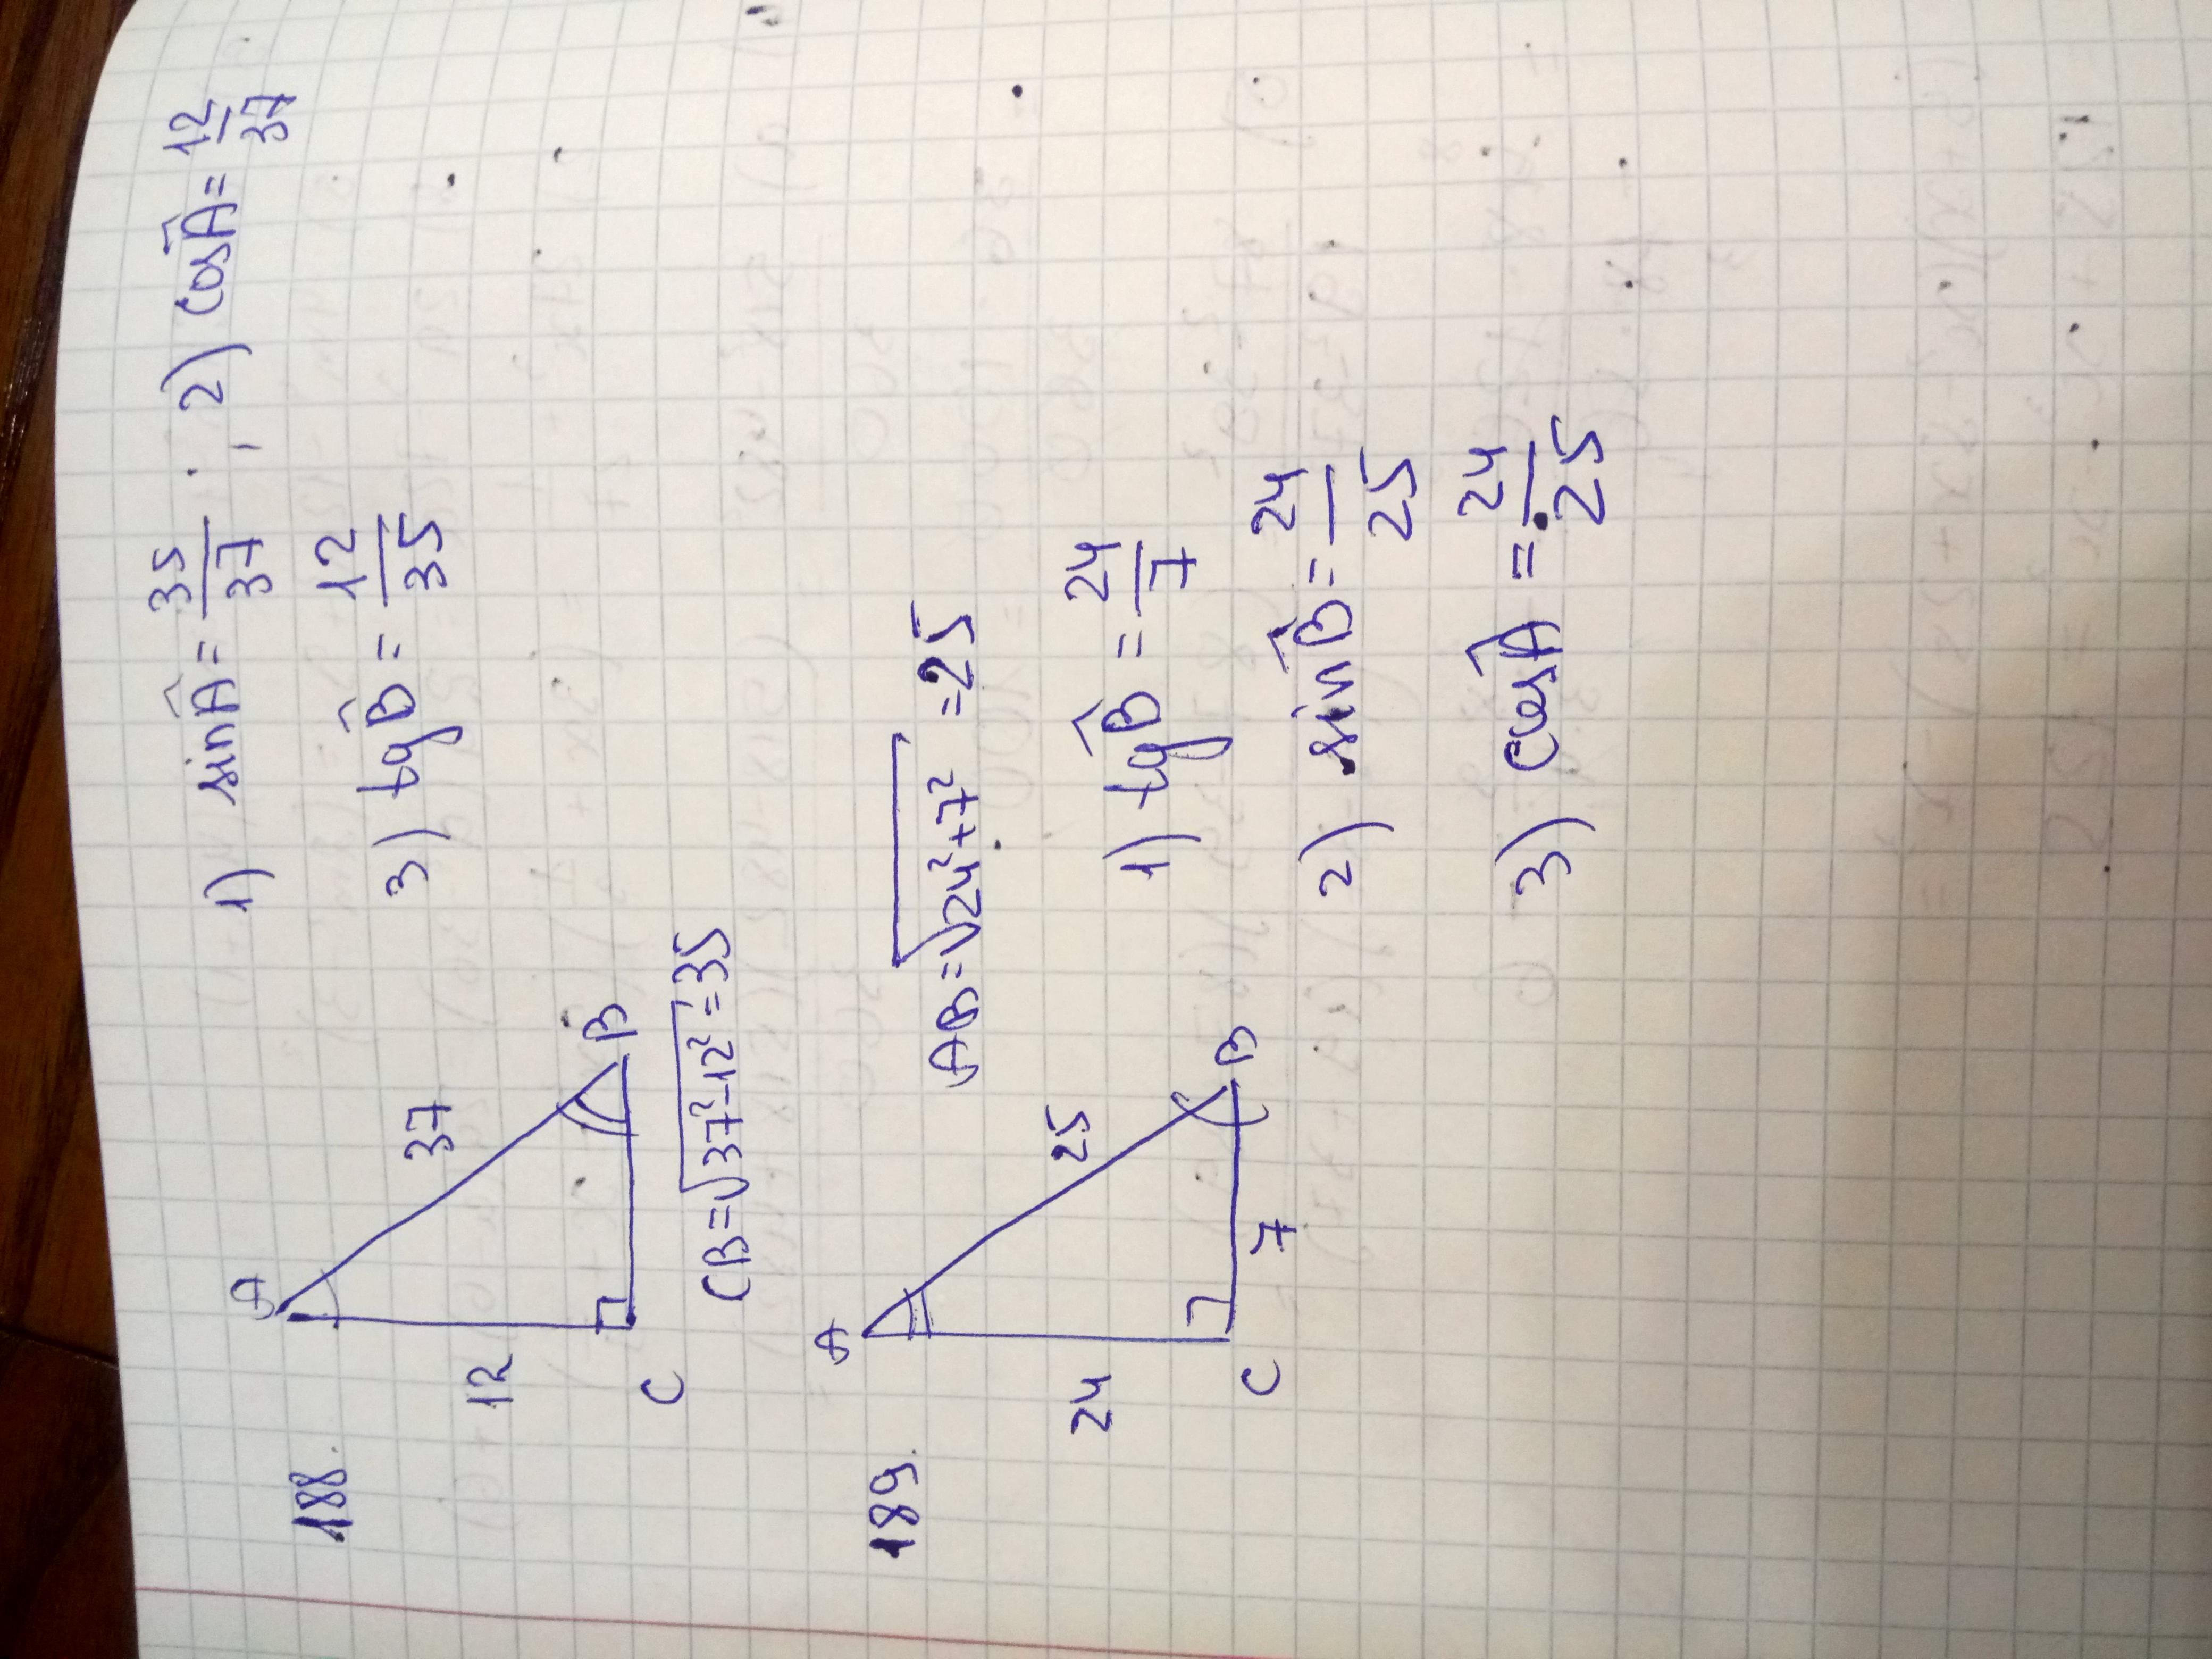 188.
A
12
37
C
B
CB=√37²-12²=35
1) sinÂ=35/37 ; 2) cosÂ=12/37
3) tgB̂=12/35
189.
A
24
25
C
7
B
AB=√24²+7² =25
1) tgB̂=24/7
2) sinB̂=24/25
3) cosÂ=24/25